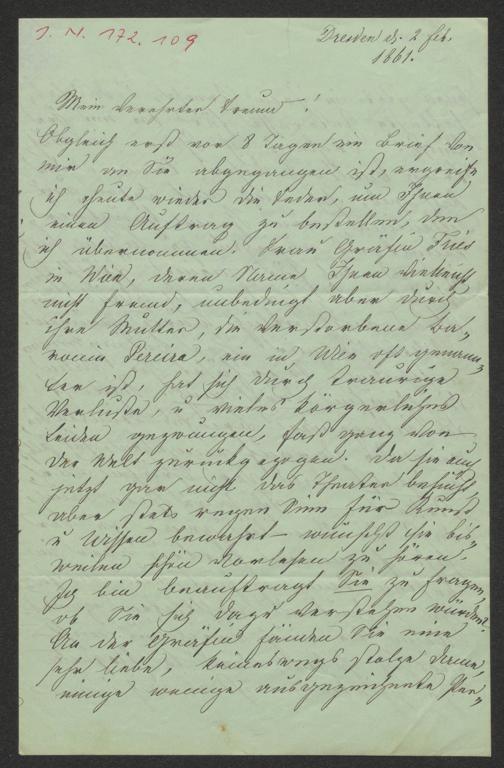 J. N. 172.109
Dresden d. 2 Feb.
1861.
Mein verehrter Freund!
Obgleich erst vor 8 Tagen ein Brief von
mir an Sie abgegangen ist, ergreife
ich heute wieder die Feder, um Ihnen
einen Auftrag zu bestellen, den
ich übernommen. Frau Gräfin Fries
in Wien, deren Name Ihnen vielleicht
nicht fremd, unbedingt aber durch
ihre Mutter, die verstorbene Ba-
ronin Pereira, ein in Wien oft genann-
ter ist, hat sich durch traurige
Verluste, u vieles körperliches
Leiden gezwungen, fast ganz von
der Welt zurückgezogen. Da sie auch
jetzt gar nicht das Theater besucht
aber stets regen Sinn für Kunst
u Wissen bewahrt – wünscht sie bis-
weilen schön vorlesen zu hören.
Ich bin beauftragt Sie zu fragen,
ob Sie sich dazu verstehen würden?
An der Gräfin fänden Sie eine
sehr liebe, keineswegs stolze Dame,
einige wenige ausgezeichnete Per-